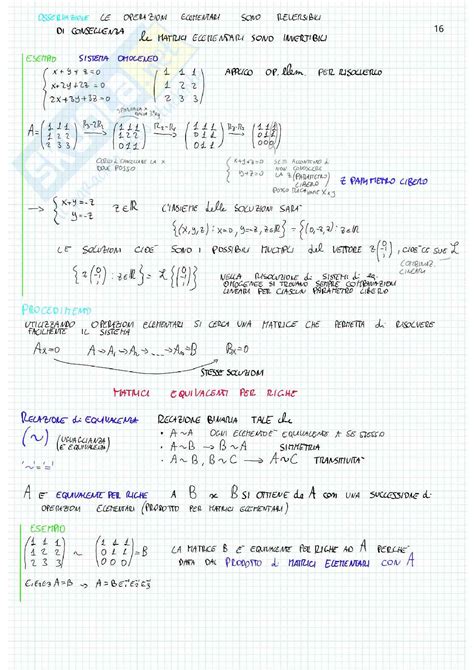 OSSERVAZIONE LE OPERAZIONI ELEMENTARI SONO REVERSIBILI
16
DI CONSEGUENZA le MATRICI ELEMENTARI SONO INVERTIBILI
ESEMPIO SISTEMA OMOGENEO
{ x+y+z=0 ( 1 1 1 ) APPLICO OP. elem. PER RISOLVERLO
x+2y+2z=0 ( 1 2 2 )
2x+3y+3z=0 ( 2 3 3 )
A = ( 1 1 1 / 1 2 2 / 2 3 3 ) → ( 1 1 1 / 1 2 2 / 0 1 1 ) → ( 1 1 1 / 0 1 1 / 0 1 1 ) → ( 1 1 1 / 0 1 1 / 0 0 0 )
CERCO di CANCELLARE LA x
DOVE POSSO
{ x+y+z=0
y+z=0
LA z (PARAMETRO
LIBERO)
z PARAMETRO LIBERO
→ { x+y=-z z∈ℝ L'INSIEME delle SOLUZIONI SARÀ
y=-z
{(x,y,z): x=0, y=-z, z∈ℝ} = {(0,-z,z): z∈ℝ}
LE SOLUZIONI CIOÈ SONO I POSSIBILI MULTIPLI del VETTORE z(0 -1 1), CIOÈ
COMBINAZ.
LINEARI
{ z(0 -1 1) : z∈ℝ } = L{(0 -1 1)} NELLA RISOLUZIONE di SISTEMI di EQ.
OMOGENEE SI TROVANO SEMPRE COMBINAZIONI
LINEARI PER CIASCUN PARAMETRO LIBERO
PROCEDIMENTO
UTILIZZANDO OPERAZIONI ELEMENTARI SI CERCA UNA MATRICE CHE PERMETTA di RISOLVERE
FACILMENTE IL SISTEMA
Ax=0 A→A₁→A₂→...→Aₙ=B Bx=0
STESSE SOLUZIONI
MATRICI EQUIVALENTI PER RIGHE
RELAZIONE di EQUIVALENZA RELAZIONE BINARIA TALE che
(∼) (UGUAGLIANZA · A∼A OGNI ELEMENTO È EQUIVALENTE A SE STESSO
È EQUIVALENZA) · A∼B → B∼A SIMMETRIA
'∼'='=' · A∼B, B∼C → A∼C TRANSITIVITÀ
A È EQUIVALENTE PER RIGHE A B se B SI OTTIENE da A con UNA SUCCESSIONE di
OPERAZIONI ELEMENTARI (PRODOTTO PER MATRICI ELEMENTARI)
ESEMPIO
( 1 1 1 / 1 2 2 / 2 3 3 ) ∼ ( 1 1 1 / 0 1 1 / 0 0 0 ) = B LA MATRICE B È EQUIVALENTE PER RIGHE AD A PERCHÉ
DATA DAL PRODOTTO di MATRICI ELEMENTARI CON A